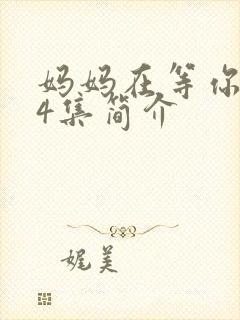 妈妈在等你
4集简介
娓美